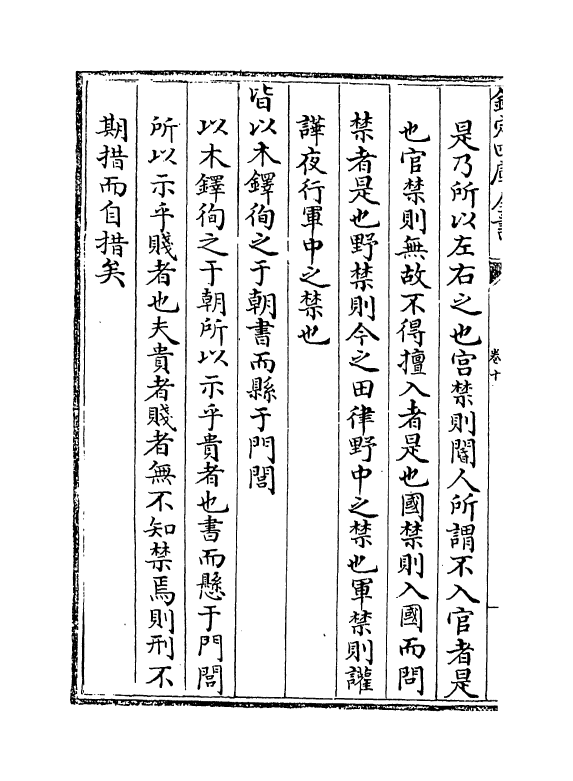 欽定四庫全書
卷十
是乃所以左右之也宫禁則閽人所謂不入宫者是
也官禁則無故不得擅入者是也國禁則入國而問
禁者是也野禁則今之田律野中之禁也軍禁則讙
譁夜行軍中之禁也
皆以木鐸徇之于朝書而縣于門閭
以木鐸徇之于朝所以示乎貴者也書而懸于門閭
所以示乎賤者也夫貴者賤者無不知禁焉則刑不
期措而自措矣